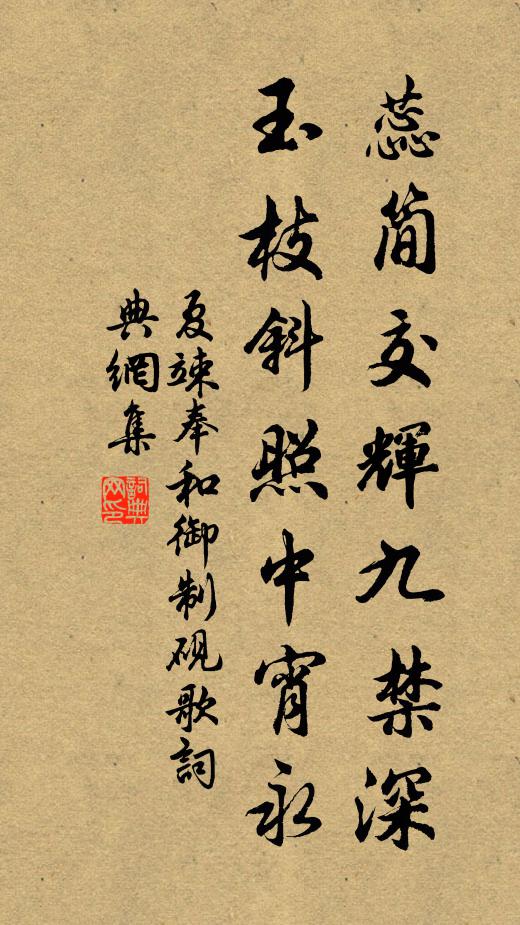 蕊简交輝九禁深
玉枝斜照中宵永
夏竦奉和御制砚歌詞
典網集
詞典网印